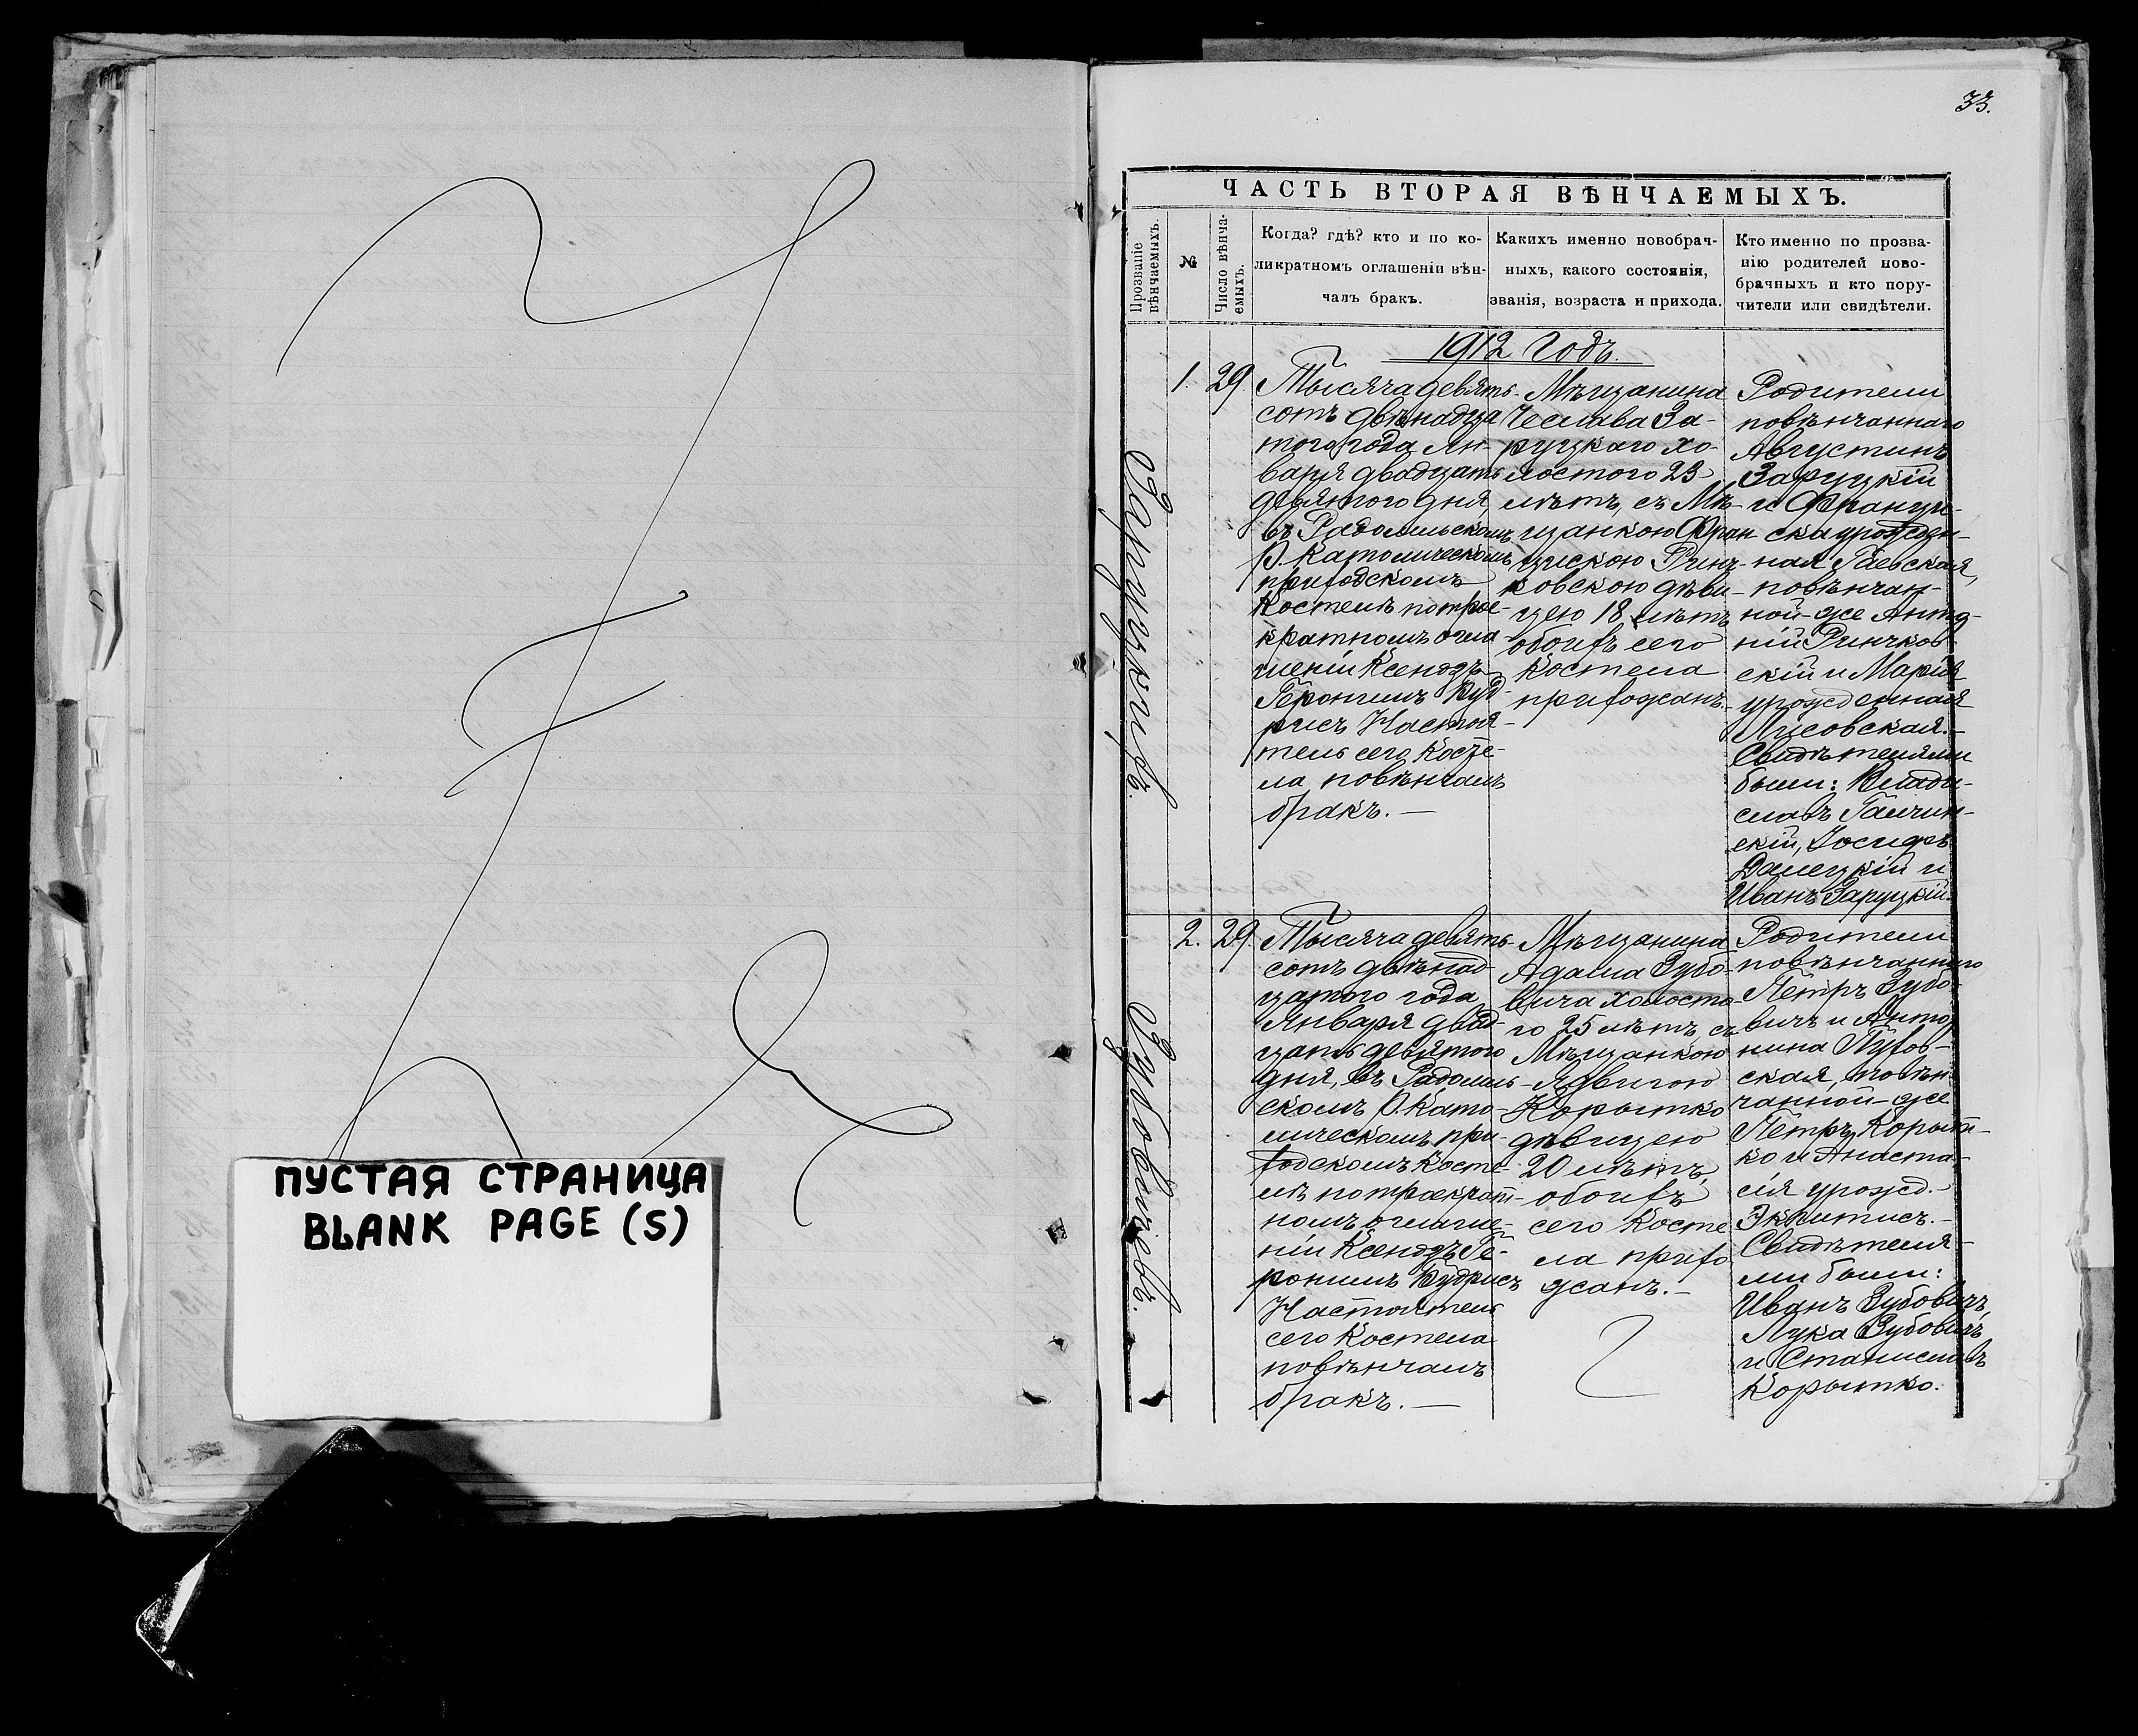 33.
ЧАСТЬ ВТОРАЯ ВѢНЧАЕМЫХЪ.
Прозваніе
вѣнчаемыхъ.
№
Число вѣнча-
емыхъ.
Когда? гдѣ? кто и по ко-
ликратномъ оглашеніи вѣн-
чалъ бракъ.
Какихъ именно новобрач-
ныхъ, какого состоянія,
званія, возраста и прихода.
Кто именно по прозва-
нію родителей ново-
брачныхъ и кто пору-
чители или свидѣтели.
1912 Годъ.
Заруцкихъ.
1.
29.
Тысяча девять-
сотъ двѣнадца
того года Ян-
варя двадцать
девятого дня,
въ Радомльскомъ
Р. Католическомъ
приходскомъ
Костелѣ по трое-
кратномъ огла
шеніи Ксендзъ
Геронимъ Будрисъ Настоя-
тель сего Косте-
ла повѣнчалъ
бракъ. —
Мѣщанина
Чеслава За-
руцкаго хо-
лостого 23
лѣтъ, съ Мѣ-
щанкою Фран
цискою Ринч-
ковскою дѣви-
цею 18 лѣтъ
обоихъ сего
Костела
прихожанъ.
Родители
повѣнчаннаго
Августинъ
Заруцкій
и Францис-
ска урожден-
ная Гаевская,
повѣнчан-
ной-же Анто-
ній Ринчков-
скій и Марія
урожденная
Лисовская.—
Свидѣтелями
были: Влади-
славъ Галчин-
скій, Іосифъ
Далецкій и
Иванъ Заруцкій.
Зубовичевъ.
2.
29.
Тысяча девять-
сотъ двѣнад-
цатого года
Января двад-
цать девятого
дня, въ Радомль-
скомъ Р. Като-
лическомъ при-
ходскомъ Косте-
лѣ по троекрат-
номъ оглаше-
ніи Ксендзъ Ге-
ронимъ Будрисъ
Настоятель
сего Костела
повѣнчалъ
бракъ. —
Мѣщанина
Адама Зубо-
вича холосто-
го 25 лѣтъ, съ
Мѣщанкою
Ядвигою
Корытко
дѣвицею
20 лѣтъ,
обоихъ
сего Косте
ла прихо
жанъ.—
Родители
повѣнчаннаго
Петръ Зубо-
вичъ и Анто-
нина Пухов-
ская, повѣн-
чанной-же
Петръ Корыт-
ко и Анаста-
сія урожд.-
Свидѣтеля-
ми были:
Иванъ Зубовичъ,
Лука Зубовичъ
и Станиславъ
Корытко.
ПУСТАЯ СТРАНИЦА
BLANK PAGE (S)